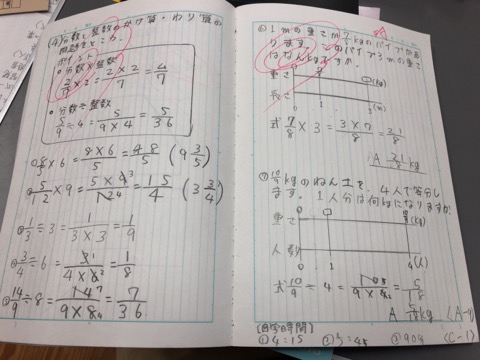 (4) 分数と整数のかけ算・わり算の
問題をとこう。
ポイント
○分数×整数
2/7 × 2 = 2×2/7 = 4/7
○分数÷整数
5/9 ÷ 4 = 5/9×4 = 5/36
× 6 = 8×6/5 = 48/5 (9 3/5)
5/12 × 9 = 5×9 3/12 4 = 15/4 (3 3/4)
③ 1/3 ÷ 3 = 1/3×3 = 1/9
3/4 ÷ 6 = 3 1/4×6 2 = 1/8
14/9 ÷ 8 = 14 7/9×8 4 = 7/36
1mの重さが 7/8 kgのパイプがあ
ります。このパイプ3mの重さ
はなんkgですか。
重さ 0 □(kg)
長さ 0 1 3 (m)
式 7/8 × 3 = 3×7/8 =
A kg
10/9 kgのねん土を、4人で等分し
ます。1人分は何kgになりますか。
重さ 0 □ 10/9 (kg)
人数 0 1 4 (人)
式 10/9 ÷ 4 = 10 5/9×4 2 = 5/18
A 5/18 kg
[自学時間]
① 4:15 ② 5:45 ③ 90分